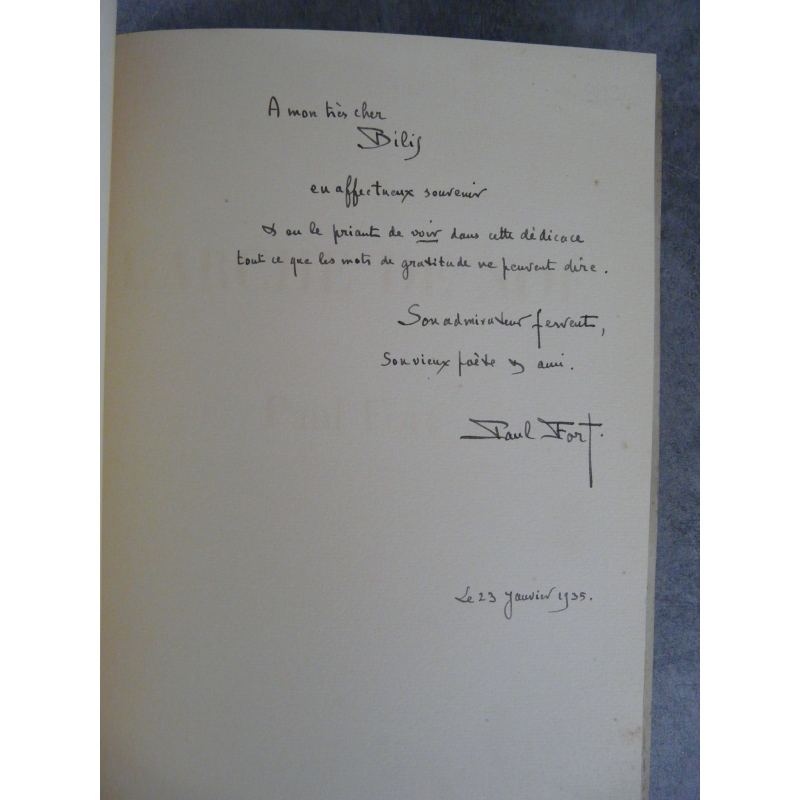 A mon très cher
Bilis
en affectueux souvenir
& en le priant de voir dans cette dédicace
tout ce que les mots de gratitude ne peuvent dire.
Son admirateur fervent,
Son vieux poète & ami.
Paul Fort.
Le 23 Janvier 1935.
Paul Fort